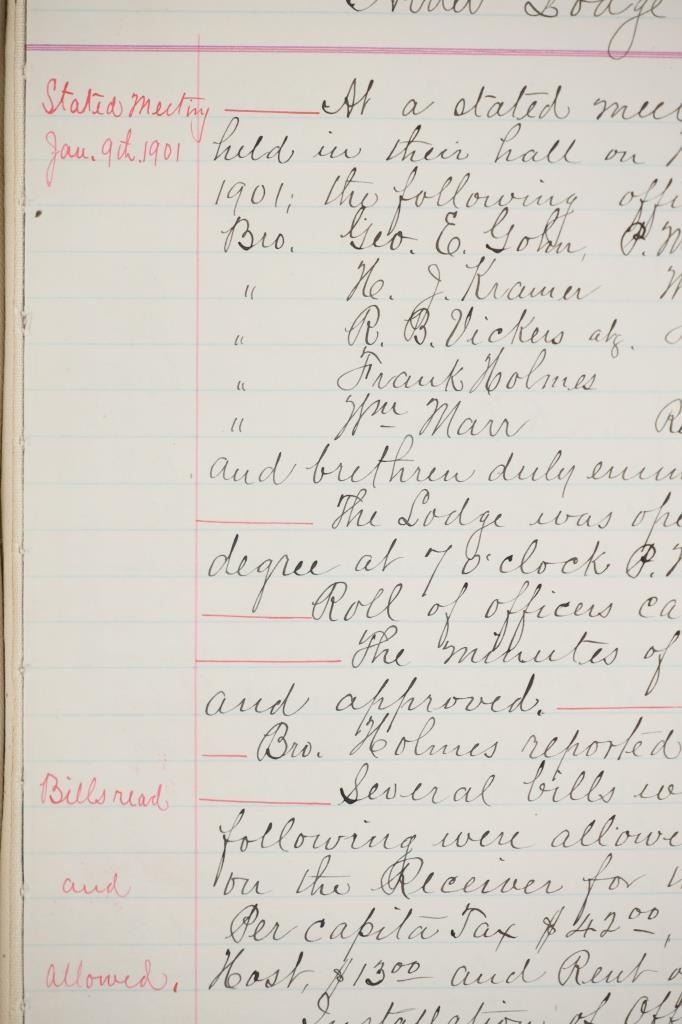 Lodge
Stated Meeting At a stated mee
Jan. 9th. 1901 held in their hall on
1901; the following offi
Bro. Geo. E. Gohn, P. M
" H. J. Kramer W
" R. B. Vickers
" Frank Holmes
" Wm Marr R
and brethren duly enum
The Lodge was ope
degree at 7 o'clock P. M
Roll of officers ca
The minutes of
and approved.
Bro. Holmes reported
Bills read Several bills w
following were allowe
and on the Receiver for
Per capita Tax $42 00,
allowed. Host, $13 00 and Rent o
Installation of Off